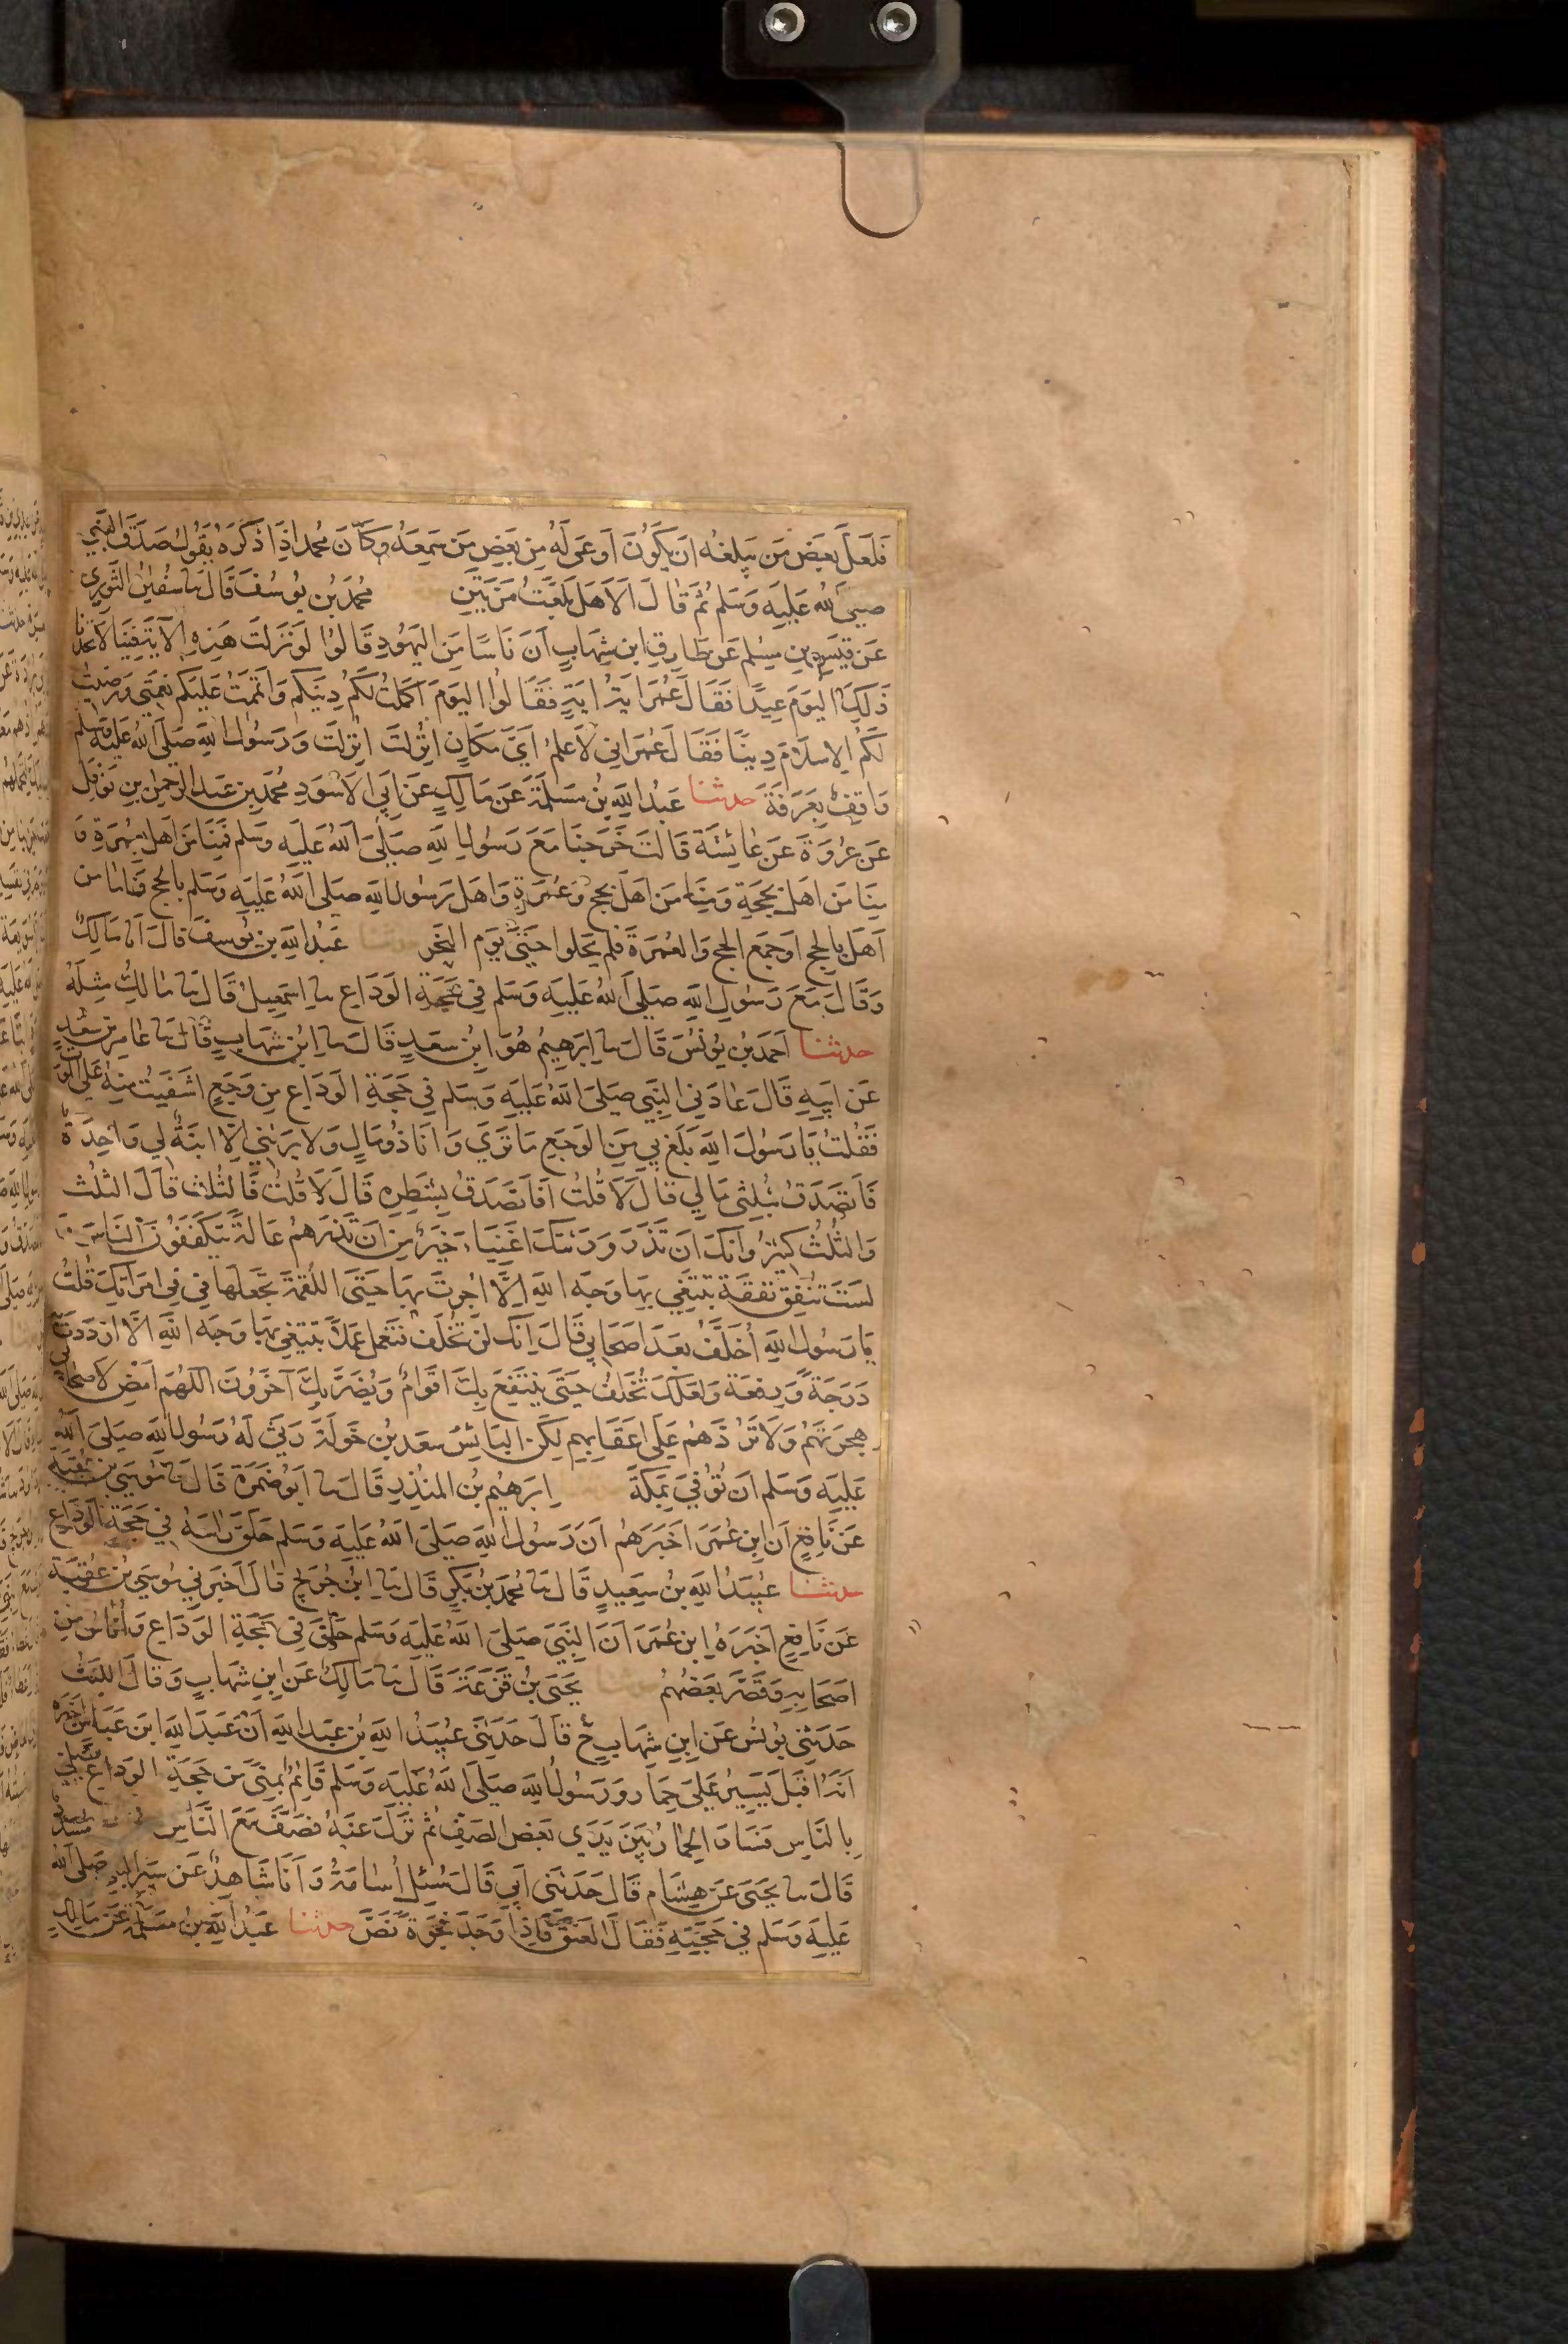 فَلَعَلَّ بَعْضَ مَن يَبلغُه ان يَكُونَ اَوعَى لَهُ مِن بَعضِ مَن سَمِعَهُ وَكَانَ محمد اذَا ذَكَرَهُ يَقُولُ صَدَقَ النَّبِي
صلى الله عَلَيهِ وَسَلم ثُمَّ قَالَ اَلَا هَل بَلّغتُ مَرّتَينِ محمَّدُ بنُ يُوسُفَ قَالَ نا سُفيٰنُ الثَّورِي
عَن قَيسِ بنِ مسِلم عَن طَارِقِ ابن شِهَابٍ اَنَّ نَاسًا مِنَ اليَهُودِ قَالُوا لَو نَزَلَت هَذِهِ الآيَةُ فِينَا لَاتَّخَذنَا
ذَلِكَ اليَومَ عِيدًا فَقَالَ عُمَرُ ايَةُ ايَةٍ فَقَالُوا اليَومَ اَكمَلتُ لَكُم دِينَكُم وَاَتمَمتُ عَلَيكُم نِعمَتِي وَرَضِيتُ
لَكُمُ الاِسلَامَ دِينًا فَقَالَ عُمَرُ اِني لَاَعلمُ اَيَّ مَكَانٍ انزِلَت انزِلَت وَرَسُولُ اللهِ صَلَى اللهُ عَلَيهِ وَسَلم
وَاقِفٌ بِعَرَفَةَ حدثنا عَبدُ اللهِ بنُ مَسلَمَةَ عَن مَالِكٍ عَن اَبِي الاَسوَدِ محَمَّدِ بنِ عَبدِ الرَّحمٰنِ بنِ نَوفَلٍ
عَن عُروَةَ عَن عَائِشَةَ قَالَت خَرَجنَا مَعَ رَسُولِ اللهِ صَلَى اللهُ عَلَيهِ وَسَلم فَمِنَّا مَن اَهَلَّ بِعُمرَةٍ وَ
مِنَّا مَن اَهَلَّ بِحَجّةٍ وَمِنَّا مَن اَهَلَّ بِحَجٍّ وَعُمرَةٍ وَاَهَلَّ رَسُولُ اللهِ صَلى اللهُ عَلَيهِ وَسَلم بِالحجِّ فَامَّا من
اَهَلَّ بِالحَجِّ اَو جَمَعَ الحجَّ وَالعُمرَةَ فَلم يَحِلوا حَتَّى يَومِ النَّحرِ حدثنا عَبدُ اللهِ بن يُوسفَ قَالَ اَنا مَالِكٌ
وَقَالَ مَعَ رَسُولِ اللهِ صَلَى اللهُ عَلَيهِ وَسَلم فِي حَجَّةِ الوَدَاعِ نا اِسمٰعِيلُ قَالَ نا مَالِكٌ مِثلَهُ
حدثنا اَحمَدُ بنُ يُونُسَ قَالَ نا اِبرَهِيمُ هُوَ ابنُ سَعدٍ قَالَ نا ابنُ شِهَابٍ قَالَ نا عَامِرُ بنُ سَعدٍ
عَن اَبِيهِ قَالَ عَادَنِي النَّبِي صَلَى اللهُ عَلَيهِ وَسَلم فِي حَجّةِ الوَدَاعِ مِن وَجَعٍ اَشفَيتُ مِنهُ عَلَى المَوتِ
فَقُلتُ يَا رَسُولَ اللهِ بَلَغَ بِي مِنَ الوَجَعِ مَا تَرَى وَاَنَا ذُو مَالٍ وَلَا يَرِثُنِي اِلَّا ابنَةٌ لِي وَاحِدَةٌ
فَاَتَصَدَّقُ بِثُلثَي مَالِي قَالَ لَا قُلتُ اَفَاَتَصَدَّقُ بِشَطرِهِ قَالَ لَا قُلتُ فَالثُّلُث قَالَ الثُّلُثُ
وَالثُّلُثُ كَثِيرٌ وَاِنَّكَ اَن تَذَرَ وَرَثَتَكَ اَغنِيَاءَ خَيرٌ مِن اَن تَذَرَهُم عَالَةً يَتَكَفَّفُونَ النَّاسَ وَ
لَستَ تُنفِقُ نَفقَةً تَبتَغِي بِهَا وَجهَ اللهِ اِلَّا اُجِرتَ بِهَا حَتَّى اللُّقمَةَ تَجعَلُهَا فِي فِي امرَاَتِكَ قُلتُ
يَا رَسُولَ اللهِ أُخَلَّفُ بَعدَ اَصحَابِي قَالَ اِنَّكَ لَن تُخَلَّفَ فَتَعمَلَ عَمَلًا تَبتَغِي بِهَا وَجهَ اللهِ اِلَّا ازدَدتَ
دَرَجَةً وَرِفعَةً وَلَعَلَّكَ تُخَلَّفُ حَتَّى يَنتَفِعَ بِكَ اَقوَامٌ وَيُضَرَّ بِكَ آخَرُونَ اَللّهُمَّ اَمضِ لِاَصحَابِي
هِجرَتَهُم وَلَا تَرُدَّهُم عَلَى اَعقَابِهِم لَكِنِ البَائِسُ سَعدُ بنُ خَولَةَ رَثَى لَهُ رَسُولُ اللهِ صَلَى اللهُ
عَلَيهِ وَسَلم اَن تُوُفِّيَ بِمَكةَ اِبرَهِيمُ بنُ المُنذِرِ قَالَ نا اَبُو ضَمرَةَ قَالَ نا مُوسَى بنُ عُقبَةَ
عَن نَافِعٍ اَنَّ ابنَ عُمَرَ اَخبَرَهُم اَنَّ رَسُولَ اللهِ صَلَى اللهُ عَلَيهِ وَسَلم حَلَقَ رَاسَهُ فِي حَجةِ الوَدَاعِ
حدثنا عُبَيدُ اللهِ بنُ سَعِيدٍ قَالَ نا محَمّدُ بنُ بَكرٍ قَالَ نا ابنُ جُرَيجٍ قَالَ اَخبَرَنِي مُوسَى بنُ عُقبَةَ
عَن نَافِعٍ اَخبَرَهُ ابنُ عُمَرَ اَنَّ النَّبِيَّ صَلَى اللهُ عَلَيهِ وَسَلم حَلَقَ فِي حَجّةِ الوَدَاعِ وَاُنَاسٌ مِن
اَصحَابِهِ وَقَصَّرَ بَعضُهُم حدثنا يَحيَى بنُ قَزَعَةَ قَالَ نا مَالِكٌ عَنِ ابنِ شِهَابٍ وَقَالَ اللَّيثُ
حَدَثَنِي يُونُسُ عَنِ ابنِ شِهَابٍ ح قَالَ حَدَثَنِي عُبَيدُ اللهِ بنُ عَبدِ اللهِ اَنَّ عَبدَ اللهِ ابنَ عَبَاسٍ اَخبَرَهُ
اَنَّهُ اَقبَلَ يَسِيرُ عَلَى حِمَارٍ وَرَسُولُ اللهِ صَلَى اللهُ عَلَيهِ وَسَلم قَائِمٌ بِمِنًى مِن حَجّةِ الوَدَاعِ يُصَلِّي
بِالنَّاسِ فَسَارَ الحِمَارُ بَينَ يَدَي بَعضِ الصَّفِّ ثُمَّ نَزَلَ عَنهُ فَصَفَّ مَعَ النَّاسِ مسدد
قَالَ نا يَحيَى عَن هِشَامٍ قَالَ حَدَثَنِي اَبِي قَالَ سُئِلَ اُسَامَةُ وَاَنَا شَاهِدٌ عَن سَيرِ النَّبِي صَلى الله
عَلَيهِ وَسَلم فِي حَجّتِهِ فَقَالَ العَنَقَ فَاِذَا وَجَدَ فَجوَةً نَصَّ حدثنا عَبدُ اللهِ بنُ مَسلَمَةَ عَن مَالِكٍ